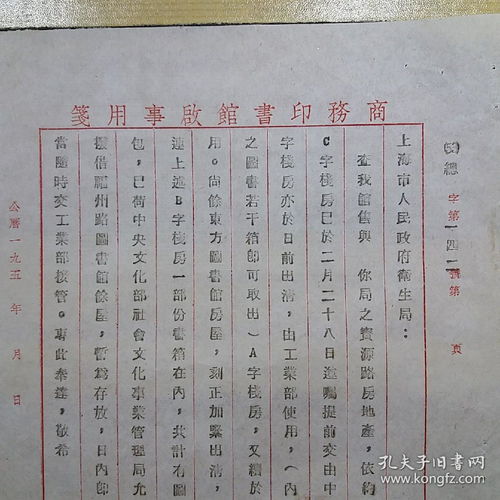 商務印書館啟事用箋
總字第一四二號第 頁
上海市人民政府衛生局：
查我館售與 你局之寶源路房地產，依約
C字棧房已於二月二十八日遵囑提前交由中
字棧房亦於日前出清，由工業部使用，（內
之圖書若干箱即可取出）A字棧房，又續於
用。尚餘東方圖書館房屋，刻正加緊出清，
連上述B字棧房一部份書箱在內，共計有圖
包，已荷中央文化部社會文化事業管理局允
撥借福州路圖書館餘屋，暫為存放，日內即
當隨時交工業部接管。專此奉達，敬希
公曆一九五 年 月 日
孔夫子旧书网
kongfz.com